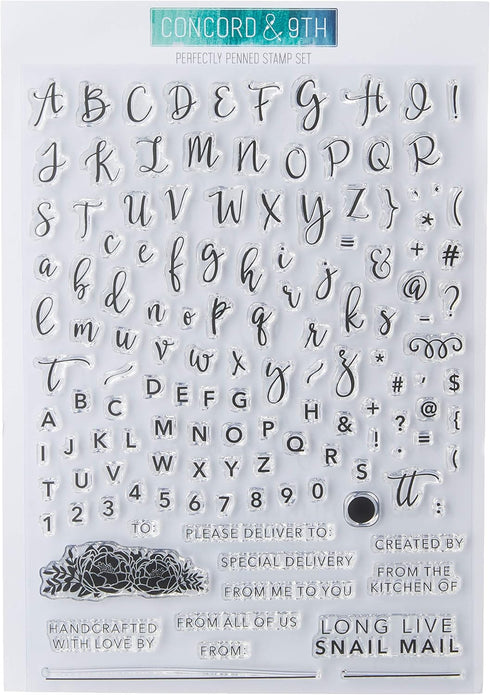 CONCORD & 9TH
PERFECTLY PENNED STAMP SET
A B C D E F G H I !
J K L M N O P Q R
S T U V W X Y Z } ' * (
a b c d e f g h i j = & + #
l m n o p q r k s @ - ?
t u v w x y z *
A B C D E F G H & + # ' @ $ {
I J K L M N O P Q R ! ? . (
T U V W X Y Z S tt :
1 2 3 4 5 6 7 8 9 0
TO: PLEASE DELIVER TO:
SPECIAL DELIVERY
CREATED BY
FROM ME TO YOU
FROM THE
KITCHEN OF
HANDCRAFTED
WITH LOVE BY
FROM ALL OF US
FROM:
LONG LIVE
SNAIL MAIL